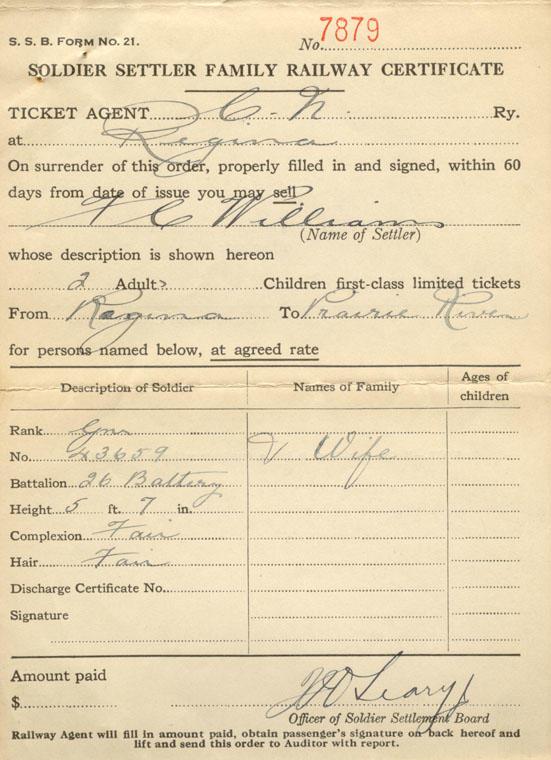 S. S. B. FORM NO. 21.
No. 7879
SOLDIER SETTLER FAMILY RAILWAY CERTIFICATE
TICKET AGENT C. N. Ry.
at Regina
On surrender of this order, properly filled in and signed, within 60
days from date of issue you may sell
F C Williams
(Name of Settler)
whose description is shown hereon
2 Adults Children first-class limited tickets
From Regina To Prairie River
for persons named below, at agreed rate
Description of Soldier Names of Family Ages of children
Rank Gnr
No. 43659 & Wife
Battalion 26 Battery
Height 5 ft. 7 in.
Complexion Fair
Hair Fair
Discharge Certificate No.
Signature
Amount paid
$
Officer of Soldier Settlement Board
Railway Agent will fill in amount paid, obtain passenger's signature on back hereof and
lift and send this order to Auditor with report.